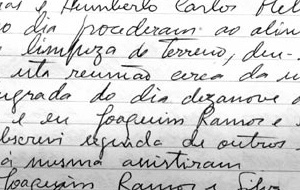 e Humberto Carlos
dia procederam ao
limpeza de terreno, deu-
reunião cerca da
do dia dezanove
e eu Joaquim Ramos e
seguida de outros
mesma assistiram
Joaquim Ramos e Silva